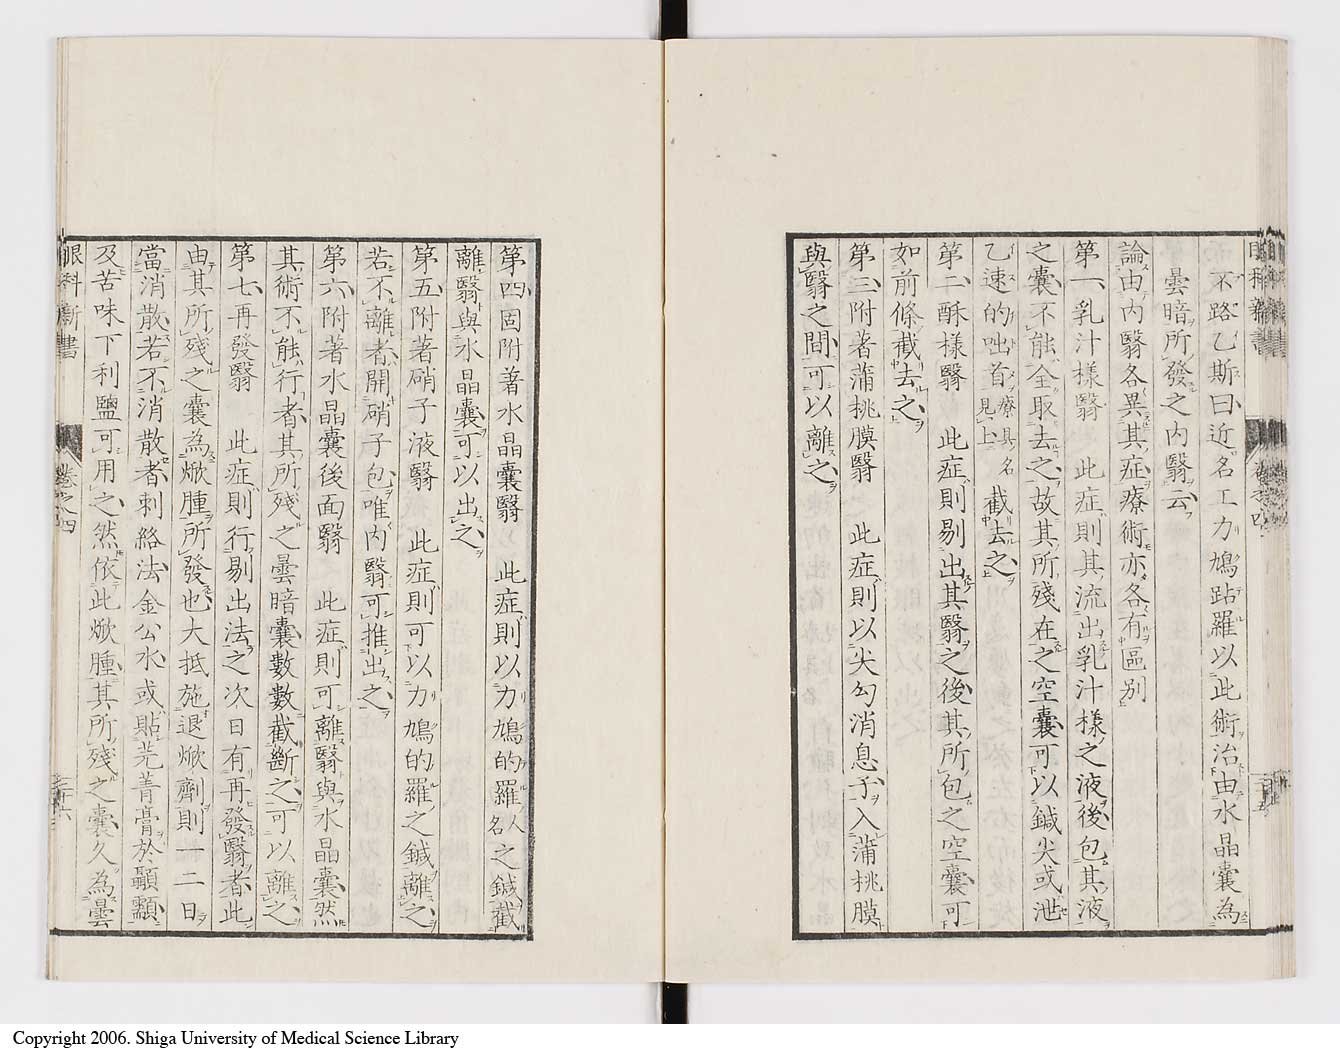 不路乙斯曰近名工力鳩跕羅以此術治由水晶囊為
曇暗所發之內翳云
論由內翳各異其症療術亦各有區別
第一乳汁樣翳　此症則其流出乳汁樣之液後包其液
之囊不能全取去之故其所殘在之空囊可以鍼尖或泄
乙速的咄首療具名見上截去之
第二酥樣翳　此症則剔出其翳之後其所包之空囊可
如前條截去之
第三附著蒲桃膜翳　此症則以尖勾消息子入蒲桃膜
與翳之間可以離之
眼科新書
卷之四
第四固附著水晶囊翳　此症則以力鳩的羅人名之鍼截
離翳與水晶囊可以出之
第五附著硝子液翳　此症則可以力鳩的羅之鍼離之
若不離者開硝子包唯內翳可推出之
第六附著水晶囊後面翳　此症則可離翳與水晶囊然
其術不能行者其所殘之曇暗囊數數截斷之可以離之
第七再發翳　此症則行剔出法之次日有再發翳者此
由其所殘之囊為焮腫所發也大抵施退焮劑則一二日
當消散若不消散者刺絡法金公水或貼芫菁膏於顳顬
及苦味下利鹽可用之然依此焮腫其所殘之囊久為曇
眼科新書
卷之四
二十六
Copyright 2006. Shiga University of Medical Science Library